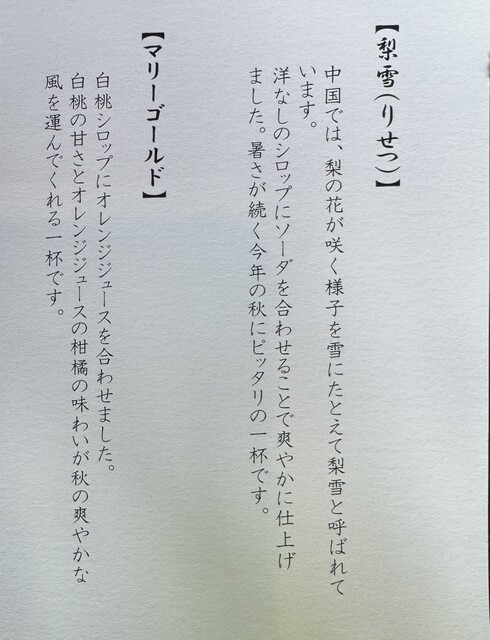 【梨雪（りせつ）】
中国では、梨の花が咲く様子を雪にたとえて梨雪と呼ばれて
います。
洋なしのシロップにソーダを合わせることで爽やかに仕上げ
ました。暑さが続く今年の秋にピッタリの一杯です。
【マリーゴールド】
白桃シロップにオレンジジュースを合わせました。
白桃の甘さとオレンジジュースの柑橘の味わいが秋の爽やかな
風を運んでくれる一杯です。